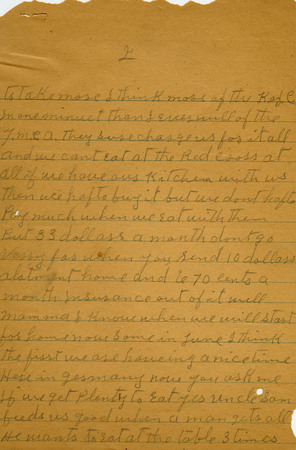 2
to take mose I think mose of the Red C
in one minuet than I ever will of the
Y.M.C.A. they sure charge us for it all
and we cant eat at the Red Cross at
all if we have our Kitchen with us
then we hafto buy it but we dont hafto
Pay much when we eat with them
But 33 dollars a month dont go
verry far when you send 10 dollars
alotment home and 6 70 cents a
month Insurance out of it well
Mamma I know when we will start
for home now some in June I think
the first we are haveing a nice time
Here in germany now you ask me
If we get Plenty to Eat yes uncle Sam
feeds us good when a man gets all
He wants to Eat at the table 3 times